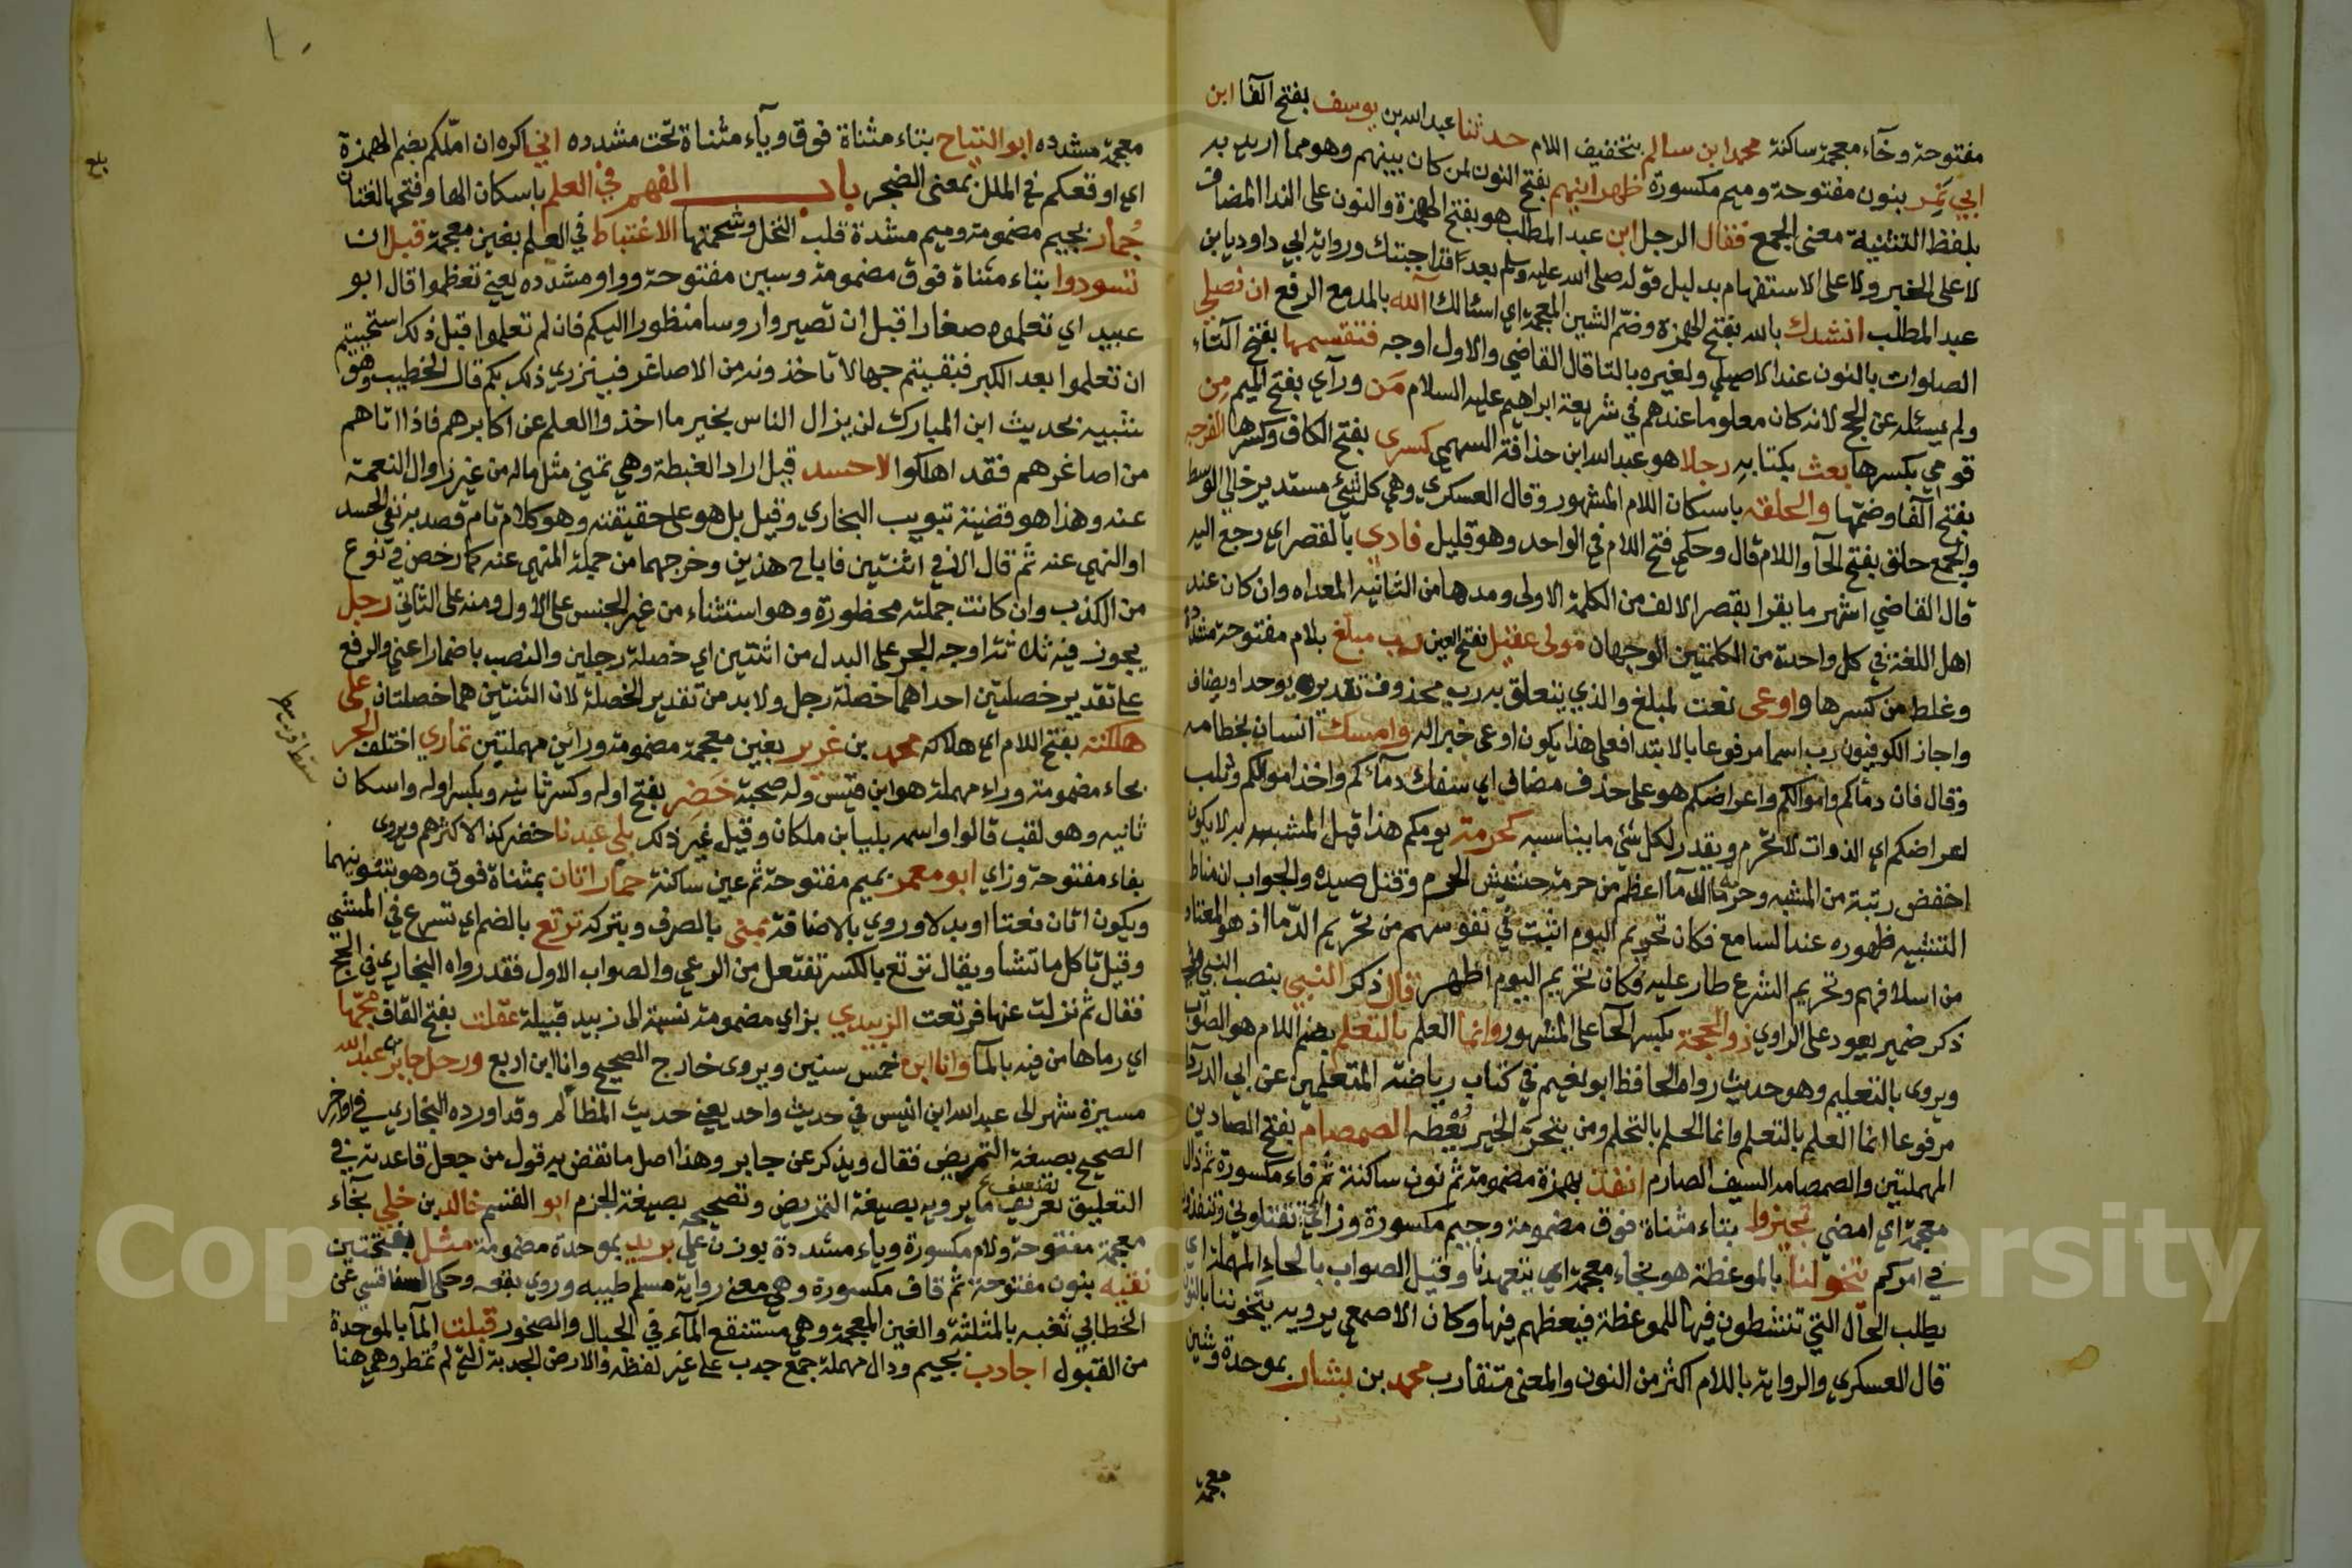 مفتوحة وخاء معجمة ساكنة محمد ابن سالم بتخفيف اللام حدثنا عبد الله بن يوسف بفتح الفا ابن
ابي نمر بنون مفتوحة وميم مكسورة ظهرانيهم بفتح النون لمن كان بينهم وهو مما اريد به
بلفظ التثنية معنى الجمع فقال الرجل ابن عبد المطلب هو بفتح الهمزة والنون على الندا المضاف
لا على الخبر ولا على الاستفهام بدليل قوله صلى الله عليه وسلم بعد قد اجبتك ورواية ابي داود يا بن
عبد المطلب انشدك بالله بفتح الهمزة وضم الشين المعجمة اي اسئالك آلله بالمد مع الرفع ان نصلي
الصلوات بالنون عند الاصيلي ولغيره بالتا قال القاضي والاول اوجه فتقسمها بفتح التاء
ولم يسئله عن الحج لانه كان معلوما عندهم في شريعة ابراهيم عليه السلام من ورآي بفتح الميم من
قومي بكسرها بعث بكتابه رجلا هو عبد الله ابن حذافة السهمي كسرى بفتح الكاف وكسرها الفرجه
بفتح الفا وضمها والحلقه باسكان اللام المشهور وقال العسكري وهي كل شئ مستدير خالي الوسط
والجمع حلق بفتح الحآ واللام قال وحكي فتح اللام في الواحد وهو قليل فادي بالمقصر اي رجع اليه
قال القاضي اشهر ما يقرا بقصر الالف من الكلمة الاولى ومدها من الثانيه المعداه وان كان عند
اهل اللغة في كل واحدة من الكلمتين الوجهان مولى عقيل بفتح العين رب مبلغ بلام مفتوحة مشددة
وغلط من كسرها واوعى نعت لمبلغ والذي يتعلق به رب محذوف تقديره يوجد او يصاف
واجاز الكوفيون رب اسما مرفوعا بالابتدا فعلى هذا يكون اوعى خبرا له وامسك انسان بخطامه
وقال فان دمآكم واموالكم واعراضكم هو على حذف مضاف اي سفك دمآئكم واخذ اموالكم وثلب
اعراضكم اي الذوات لا تحرم ويقدر لكل شئ ما يناسبه كحرمة يومكم هذا قيل المشبه به لا يكون
اخفض رتبة من المشبه وحرمة الدمآ اعظم من حرمة حشيش الحرم وقتل صيده والجواب ان مناط
التشبيه ظهوره عند السامع فكان تحريم اليوم اثبت في نفوسهم من تحريم الدما اذ هو المعتاد
من اسلافهم وتحريم الشرع طار عليه فكان تحريم اليوم اظهر قال ذكر النبي بنصب النبي وفي
ذكر ضمير يعود على الراوي ذو الحجة بكسر الحآ على المشهور وانما العلم بالتعلم بضم اللام هو الصواب
ويروى بالتعليم وهو حديث رواه الحافظ ابو نعيم في كتاب رياضة المتعلمين عن ابي الدردا
مرفوعا انما العلم بالتعلم وانما الحلم بالتحلم ومن يتحرى الخير يعطه الصمصام بفتح الصادين
المهملتين والصمصامه السيف الصارم انفذ بهمزة مضمومة ثم نون ساكنة ثم فاء مكسورة ثم ذال
معجمة اي امضي تجيزوا بتاء مثناة فوق مضمومة وجيم مكسورة وزاي تقتلوني وتنفذوا
في امركم يتخولنا بالموعظة هو بخاء معجمة اي يتعهدنا وقيل الصواب بالحاء المهملة اي
يطلب الحال التي تنشطون فيها للموعظة فيعظهم فيها وكان الاصمعي يرويه يتخوننا بالنون
قال العسكري والرواية باللام اكثر من النون والمعنى متقارب محمد بن بشار بموحدة وشين
معجمة
معجمة مشدده ابو التياح بتاء مثناة فوق وياء مثناة تحت مشدده اني اكره ان املكم بضم الهمزة
اي اوقعكم في الملل بمعنى الضجر باب الفهم في العلم باسكان الها وفتحها لغتان
جمار بجيم مضمومة وميم مشددة قلب النخل وشحمتها الاغتباط في العلم بغين معجمة قبل ان
تسودوا بتاء مثناة فوق مضمومة وسين مفتوحة وواو مشدده يعني تعظموا قال ابو
عبيد اي تعلموه صغارا قبل ان تصيروا روسا منظورا اليكم فان لم تعلموا قبل ذلك استحييتم
ان تعلموا بعد الكبر فبقيتم جهالا تاخذونه من الاصاغر فيزري ذلك بكم قال الخطيب وهو
شبيه بحديث ابن المبارك لن يزال الناس بخير ما اخذوا العلم عن اكابرهم فاذا اتاهم
من اصاغرهم فقد اهلكوا لا حسد قيل اراد الغبطة وهي تمني مثل ماله من غير زوال النعمة
عنه وهذا هو قضية تبويب البخاري وقيل بل هو على حقيقته وهو كلام تام قصد به نفي الحسد
او النهي عنه ثم قال الا في اثنتين فاباح هذين وخرجهما من جملة المنهي عنه كما رخص في نوع
من الكذب وان كانت جملته محظورة وهو استثناء من غير الجنس على الاول ومنه على الثاني رجل
يجوز فيه ثلاثة اوجه الجر على البدل من اثنتين اي خصلة رجلين والنصب باضمار اعني والرفع
على تقدير خصلتين احداهما خصلة رجل ولا بد من تقدير الخصلة لان اثنتين هما خصلتان على
هلكته بفتح اللام اي هلاكه محمد بن غرير بغين معجمة مضمومة ورائين مهملتين تماري اختلف الحر
بحاء مضمومة وراء مهملة هو ابن قيس وله صحبة خضر بفتح اوله وكسر ثانيه وبكسر اوله واسكان
ثانيه وهو لقب قالوا واسمه بليا بن ملكان وقيل غير ذلك بلى عبدنا خضر كذا لاكثرهم ويروى
بفاء مفتوحة وزاي ابو معمر بميم مفتوحة ثم عين ساكنة حمار اتان بمثناة فوق وهو بتنوينهما
ويكون اتان نعتا او بدلا وروي بالاضافة بمنى بالصرف وبتركه ترتع بالضم اي تسرع في المشي
وقيل تاكل ما تشا ويقال ترتع بالكسر تفتعل من الرعي والصواب الاول فقد رواه البخاري في الحج
فقال ثم نزلت عنها فرتعت الزبيدي بزاي مضمومة نسبة الى زبيد قبيلة عقلت بفتح القاف مجها
اي رماها من فيه بالمآ وانا ابن خمس سنين ويروى خارج الصحيح وانا ابن اربع ورحل جابر بن عبد الله
مسيرة شهر الى عبد الله ابن انيس في حديث واحد يعني حديث المظالم وقد اورده البخاري في اواخر
الصحيح بصيغة التمريض فقال ويذكر عن جابر وهذا اصل ما نقض به قول من جعل قاعدته في
التعليق تعريف ما يرويه بصيغة التمريض وتصحيحه بصيغة الجزم ابو القسم خالد بن خلي بخآء
معجمة مفتوحة ولام مكسورة وياء مشددة بوزن علي بريد بموحدة مضمومة مثل بفتحتين
نقيه بنون مفتوحة ثم قاف مكسورة وهي معنى رواية مسلم طيبه وروي بقعه وحكى السفاقسي عن
الخطابي ثغبه بالمثلثة والغين المعجمة وهي مستنقع المآء في الجبال والصخور قبلت المآ بالموحدة
من القبول اجادب بجيم ودال مهملة جمع جدب على غير لفظه والارض الجدبة التي لم تمطر وهي هنا
بلغ
Copyright © King Saud University